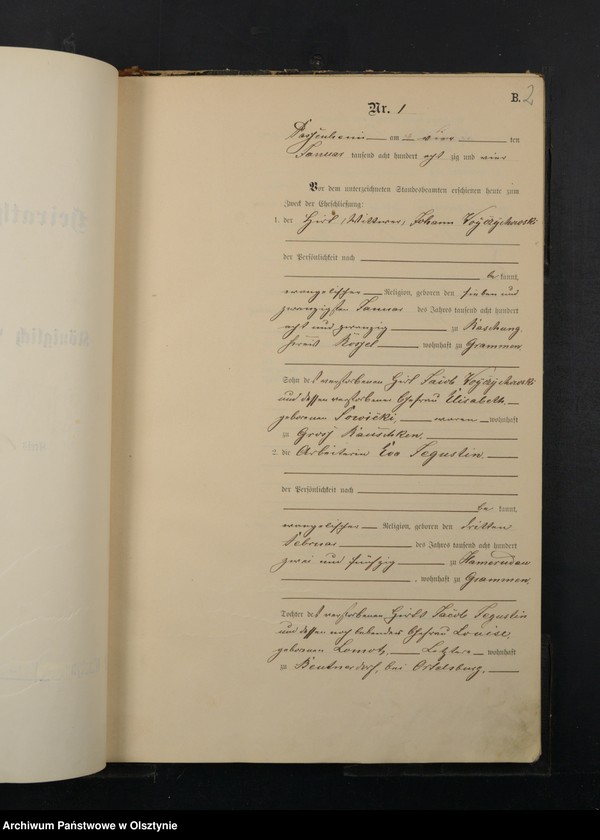 B.
2
Nr. 1
Passenheim am vier ten
Januar tausend acht hundert acht zig und vier
Vor dem unterzeichneten Standesbeamten erschienen heute zum
Zweck der Eheschließung:
1. der Hirt (Wittwer) Johann Woyczichowski
der Persönlichkeit nach
be kannt,
evangelischer Religion, geboren den sieben und
zwanzigsten Januar des Jahres tausend acht hundert
acht und zwanzig zu Raschung
Kreis Rössel wohnhaft zu Grammen
Sohn des verstorbenen Hirt Jacob Woyczichowski
und dessen verstorbener Ehefrau Elisabeth
geborenen Sowitzki, waren wohnhaft
zu Gross Rauschken.
2. die Arbeiterin Eva Segustin.
der Persönlichkeit nach
be kannt,
evangelischer Religion, geboren den dritten
Februar des Jahres tausend acht hundert
zwei und fünfzig zu Hamerudau
, wohnhaft zu Grammen
Tochter des verstorbenen Hirts Jacob Segustin
und dessen noch lebender Ehefrau Louise,
geborenen Lomotz, Letztere wohnhaft
zu Beutnersdorf, bei Ortelsburg.
Archiwum Państwowe w Olsztynie